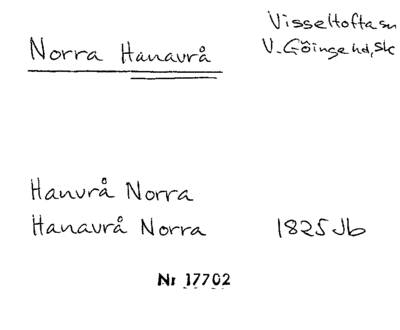 Visseltofta sn
Norra Hanavrå
V. Göinge hd, Sk
Hanvrå Norra
Hanavrå Norra 1825 Jb
Nr 17702